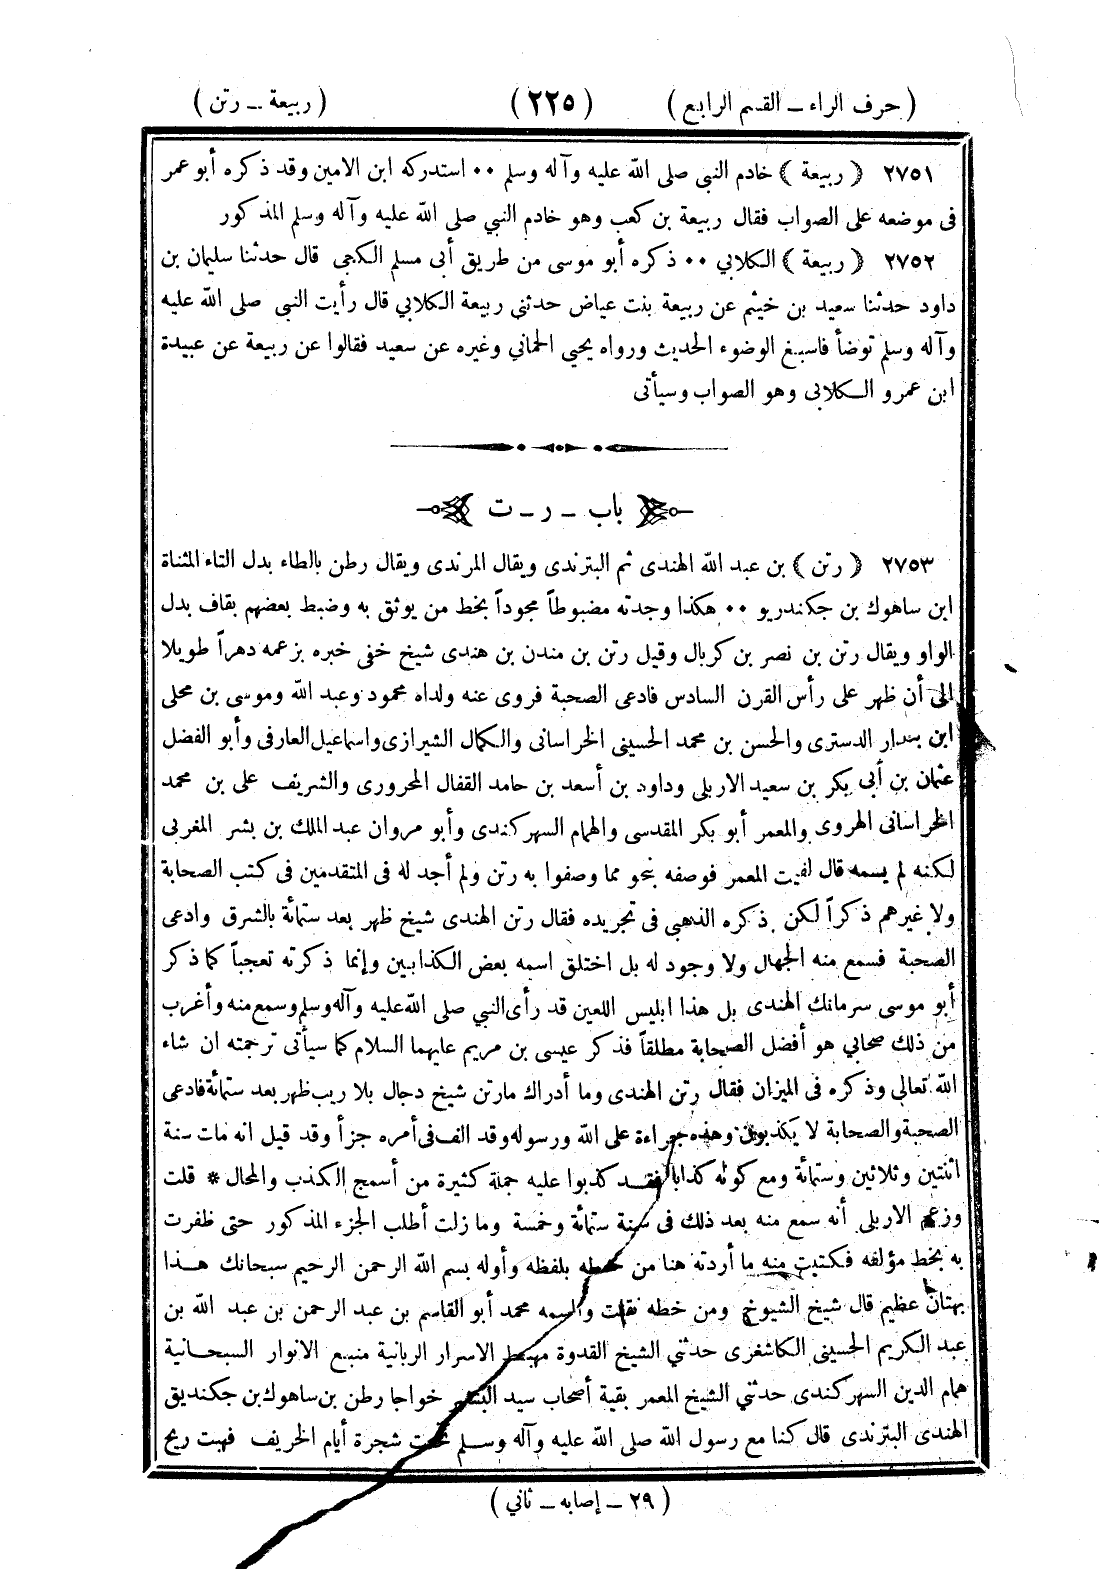 ( حرف الراء ــ القسم الرابع ) ( ٢٢٥ ) ( ربيعة ــ رتن )
٢٧٥١ ﴿ ربيعة ﴾ خادم النبى صلى الله عليه وآله وسلم ٠٠ استدركه ابن الامين وقد ذكره أبو عمر
فى موضعه على الصواب فقال ربيعة بن كعب وهو خادم النبي صلى الله عليه وآله وسلم المذكور
٢٧٥٢ ﴿ ربيعة ﴾ الكلابي ٠٠ ذكره أبو موسى من طريق أبى مسلم الكجى قال حدثنا سليمان بن
داود حدثنا سعيد بن خيثم عن ربيعة بنت عياض حدثنى ربيعة الكلابي قال رأيت النبى صلى الله عليه
وآله وسلم توضأ فاسبغ الوضوء الحديث ورواه يحيى الحمانى وغيره عن سعيد فقالوا عن ربيعة عن عبيدة
ابن عمرو الكلابى وهو الصواب وسيأتى
باب ــ ر ــ ت
٢٧٥٣ ﴿ رتن ﴾ بن عبد الله الهندى ثم البترندى ويقال المرندى ويقال رطن بالطاء بدل التاء المثناة
ابن ساهوك بن جكندريو ٠٠ هكذا وجدته مضبوطاً مجوداً بخط من يوثق به وضبط بعضهم بقاف بدل
الواو ويقال رتن بن نصر بن كربال وقيل رتن بن مندن بن هندى شيخ خفى خبره بزعمه دهراً طويلا
الى أن ظهر على رأس القرن السادس فادعى الصحبة فروى عنه ولداه محمود وعبد الله وموسى بن مجلى
ابن بندار الدسترى والحسن بن محمد الحسينى الخراسانى والكمال الشيرازى واسماعيل العارفى وأبو الفضل
عثمان بن أبى بكر بن سعيد الاربلى وداود بن أسعد بن حامد القفال المحرورى والشريف على بن محمد
الخراسانى الهروى والمعمر أبو بكر المقدسى والهمام السهركندى وأبو مروان عبد الملك بن بشر المغربى
لكنه لم يسمه قال لقيت المعمر فوصفه بنحو مما وصفوا به رتن ولم أجد له فى المتقدمين فى كتب الصحابة
ولا غيرهم ذكراً لكن ذكره الذهبي فى تجريده فقال رتن الهندى شيخ ظهر بعد ستمائة بالشرق وادعى
الصحبة فسمع منه الجهال ولا وجود له بل اختلق اسمه بعض الكذابين وإنما ذكرته تعجباً كما ذكر
أبو موسى سرمانك الهندى بل هذا ابليس اللعين قد رأى النبي صلى الله عليه وآله وسلم وسمع منه وأغرب
من ذلك صحابي هو أفضل الصحابة مطلقاً فذكر عيسى بن مريم عليهما السلام كما سيأتى ترجمته ان شاء
الله تعالى وذكره فى الميزان فقال رتن الهندى وما أدراك مارتن شيخ دجال بلا ريب ظهر بعد ستمائة فادعى
الصحبة والصحابة لا يكذبون وهذه جراءة على الله ورسوله وقد الف فى أمره جزأ وقد قيل انه مات سنة
اثنتين وثلاثين وستمائة ومع كونه كذابا فقد كذبوا عليه جملة كثيرة من أسمج الكذب والمحال * قلت
وزعم الاربلى أنه سمع منه بعد ذلك فى سنة ستمائة وخمسة وما زلت أطلب الجزء المذكور حتى ظفرت
به بخط مؤلفه فكتبت منه ما أردته هنا من خطه بلفظه وأوله بسم الله الرحمن الرحيم سبحانك هذا
بهتان عظيم قال شيخ الشيوخ ومن خطه نقلت واسمه محمد أبو القاسم بن عبد الرحمن بن عبد الله بن
عبد الكريم الحسينى الكاشغرى حدثني الشيخ القدوة مهبط الاسرار الربانية منبع الانوار السبحانية
همام الدين السهركندى حدثني الشيخ المعمر بقية أصحاب سيد البشر خواجا رطن بن ساهوك بن جكنديق
الهندى البترندى قال كنا مع رسول الله صلى الله عليه وآله وسلم تحت شجرة أيام الخريف فهبت ريح
( ٢٩ ــ إصابه ــ ثاني )